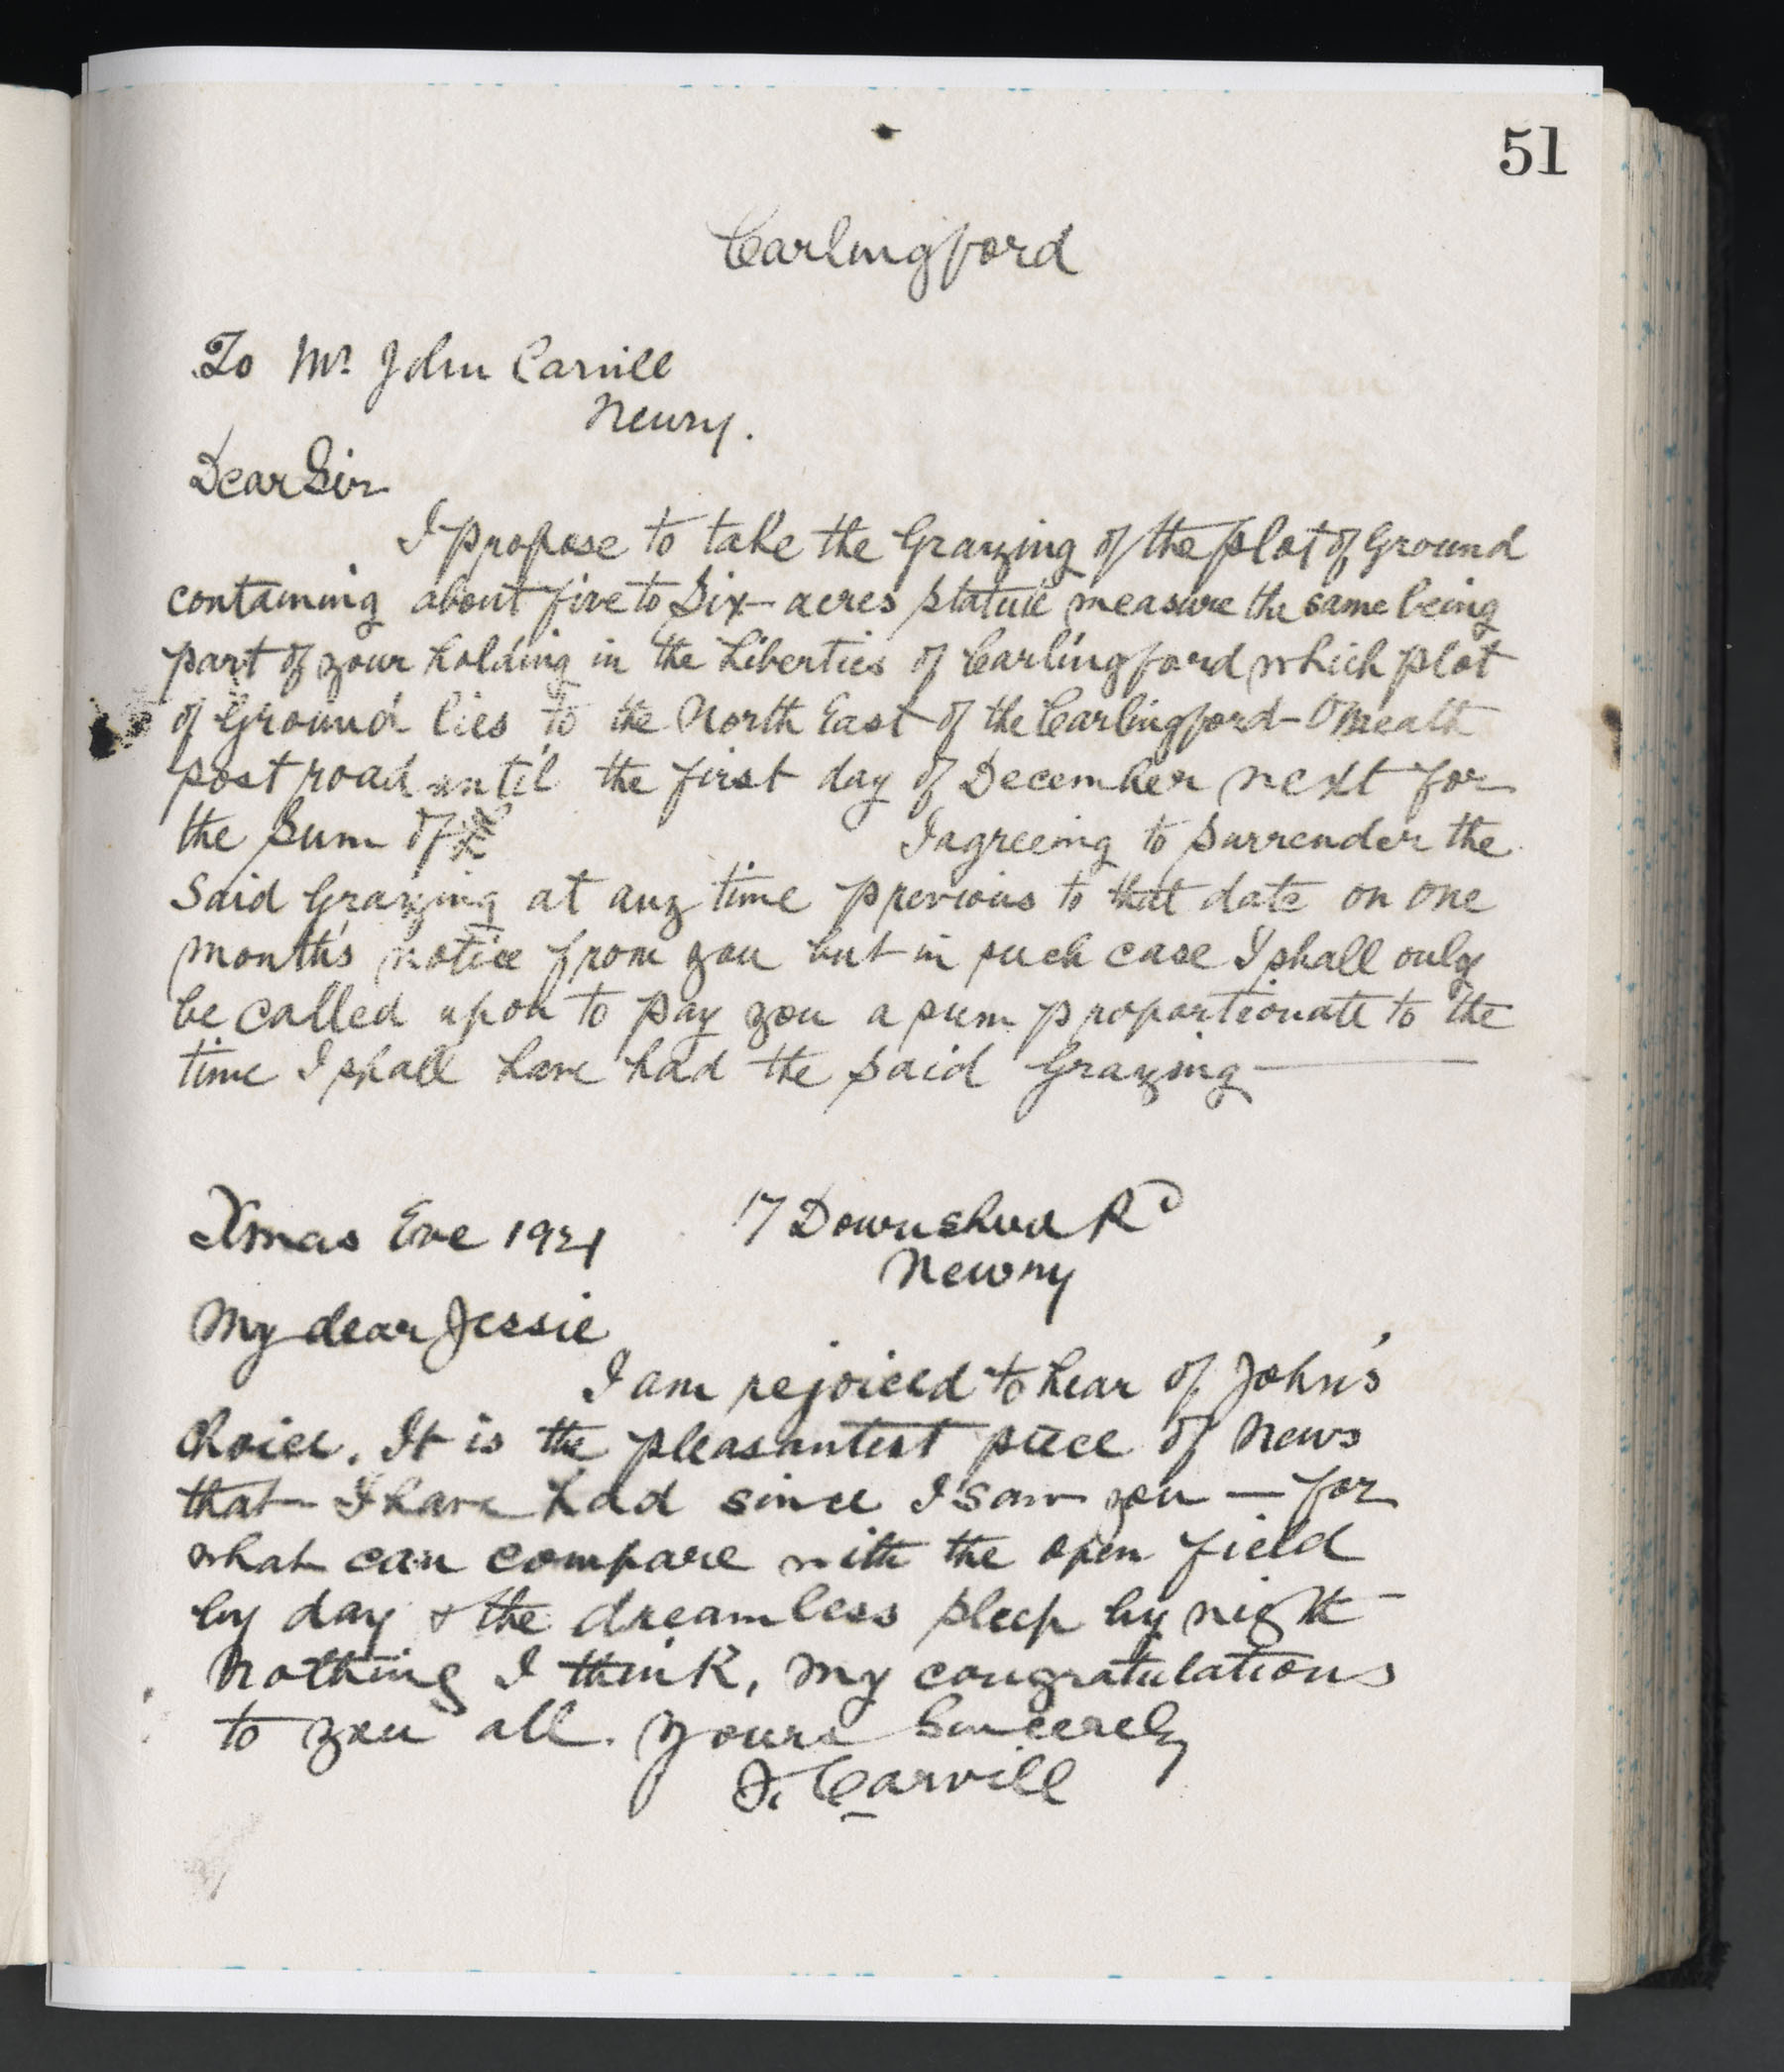 51
Carlingford
To Mr. John Carvill
Newry.
Dear Sir
I propose to take the Grazing of the plot of Ground
containing about five to Six acres statute measure the same being
part of your holding in the Liberties of Carlingford which plot
of Ground lies to the North East of the Carlingford-Omeath
post road until the first day of December next for
the sum of £ I agreeing to surrender the
Said Grazing at any time previous to that date on one
month's notice from you but in such case I shall only
be called upon to pay you a sum proportionate to the
time I shall have had the said Grazing
Xmas Eve 1921 17 Downshire Rd
Newry
My dear Jessie
I am rejoiced to hear of John's
choice. It is the pleasantest piece of news
that I have had since I saw you — for
what can compare with the open field
by day & the dreamless sleep by night —
Nothing I think, my congratulations
to you all. Yours Sincerely
J. Carvill